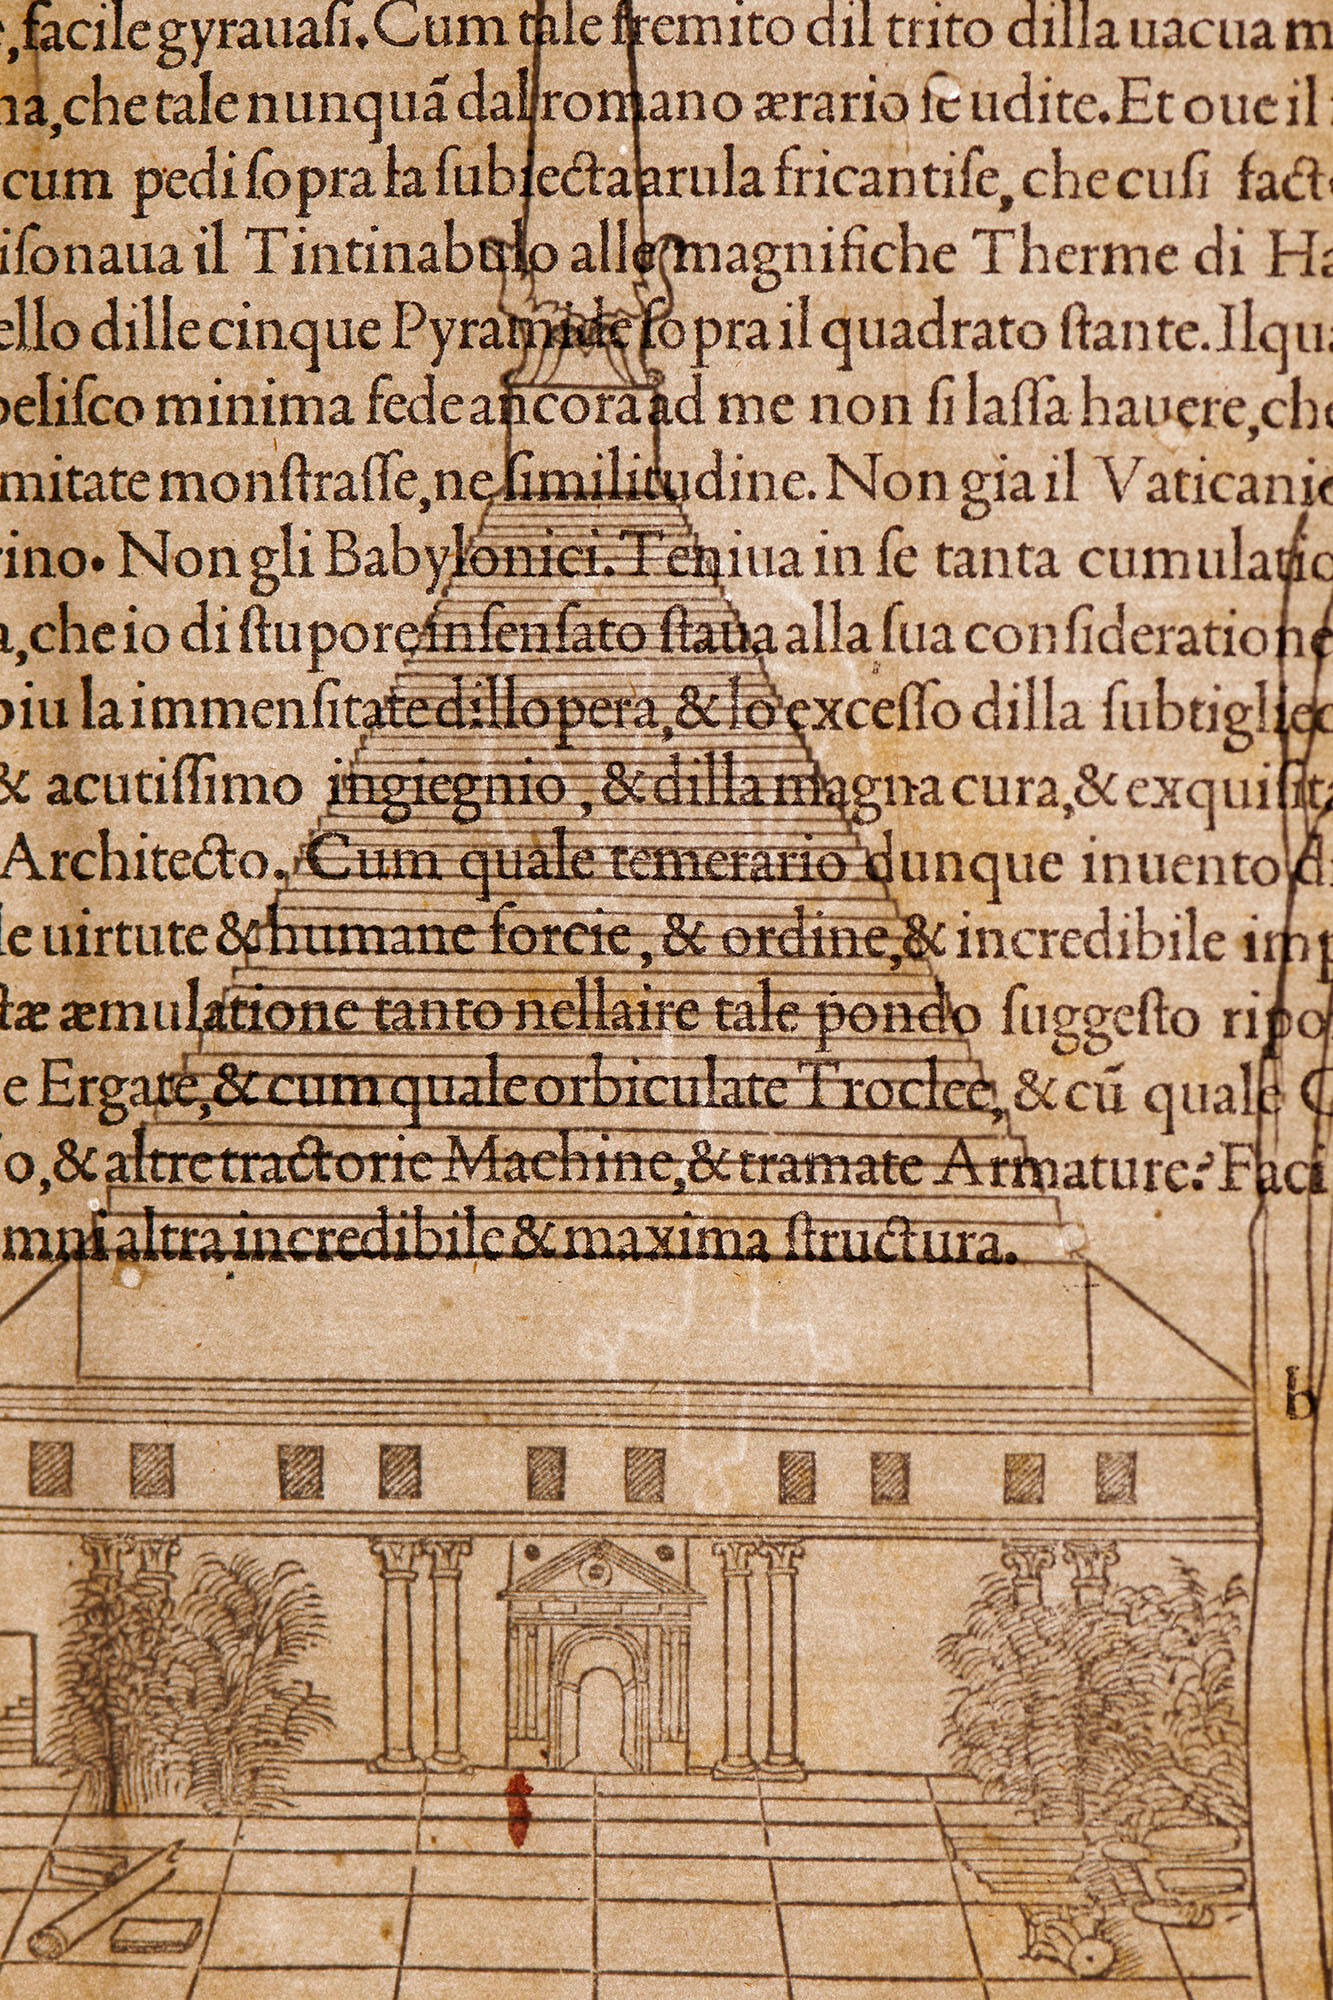 , facile gyrauaſi. Cum tale fremito dil trito dilla uacua m
na, che tale nunquã dal romano ærario ſe udite. Et oue il
cum pedi ſopra la ſubiecta arula fricantiſe, che cuſi facto
iſonaua il Tintinabulo alle magnifiche Therme di Ha
ello dille cinque Pyramide ſopra il quadrato ſtante. Ilqua
beliſco minima fede ancora ad me non ſi laſſa hauere, che
mitate monſtraſſe, ne ſimilitudine. Non gia il Vaticano
rino. Non gli Babylonici. Teniua in ſe tanta cumulatio
a, che io di ſtupore inſenſato ſtaua alla ſua conſideratione
piu la immenſitate dillopera, & lo exceſſo dilla ſubtigliec
& acutiſſimo ingiegnio, & dilla magna cura, & exquiſita
Architecto. Cum quale temerario dunque inuento di
le uirtute & humane forcie, & ordine, & incredibile imp
ſtæ æmulatione tanto nellaire tale pondo ſuggeſto ripo
e Ergate, & cum quale orbiculate Troclee, & cũ quale C
o, & altre tractorie Machine, & tramate Armature? Faci
mni altra incredibile & maxima ſtructura.
b